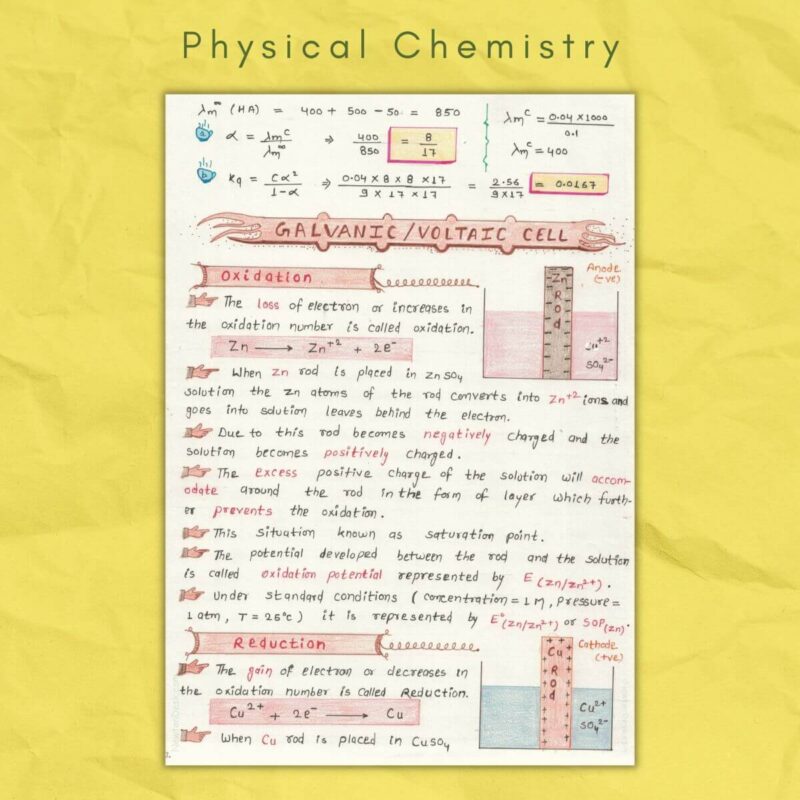 Physical Chemistry
λm^∞ (HA) = 400 + 500 - 50 = 850
λm^c = 0.04 × 1000 / 0.1
a α = λm^c / λm^∞ ⇒ 400 / 850 = 8 / 17
λm^c = 400
b Kq = Cα² / 1-α ⇒ 0.04 × 8 × 8 × 17 / 9 × 17 × 17 = 2.56 / 9×17 = 0.0167
GALVANIC / VOLTAIC CELL
Oxidation
Anode
(-ve)
Zn
Rod
Zn+2
SO4^2-
The loss of electron or increases in
the oxidation number is called oxidation.
Zn ⟶ Zn+2 + 2e-
When Zn rod is placed in ZnSO4
solution the Zn atoms of the rod converts into Zn+2 ions and
goes into solution leaves behind the electron.
Due to this rod becomes negatively charged and the
solution becomes positively charged.
The Excess positive charge of the solution will accom-
odate around the rod in the form of layer which furth-
er prevents the oxidation.
This situation known as saturation point.
The potential developed between the rod and the solution
is called oxidation potential represented by E (Zn/Zn2+).
Under standard conditions ( concentration = 1 M, Pressure =
1 atm, T = 25°C ) it is represented by E°(Zn/Zn2+) or SOP(Zn).
Reduction
Cathode
(+ve)
Cu
Rod
Cu2+
SO4^2-
The gain of electron or decreases in
the oxidation number is called Reduction.
Cu2+ + 2e- ⟶ Cu
When Cu rod is placed in CuSO4